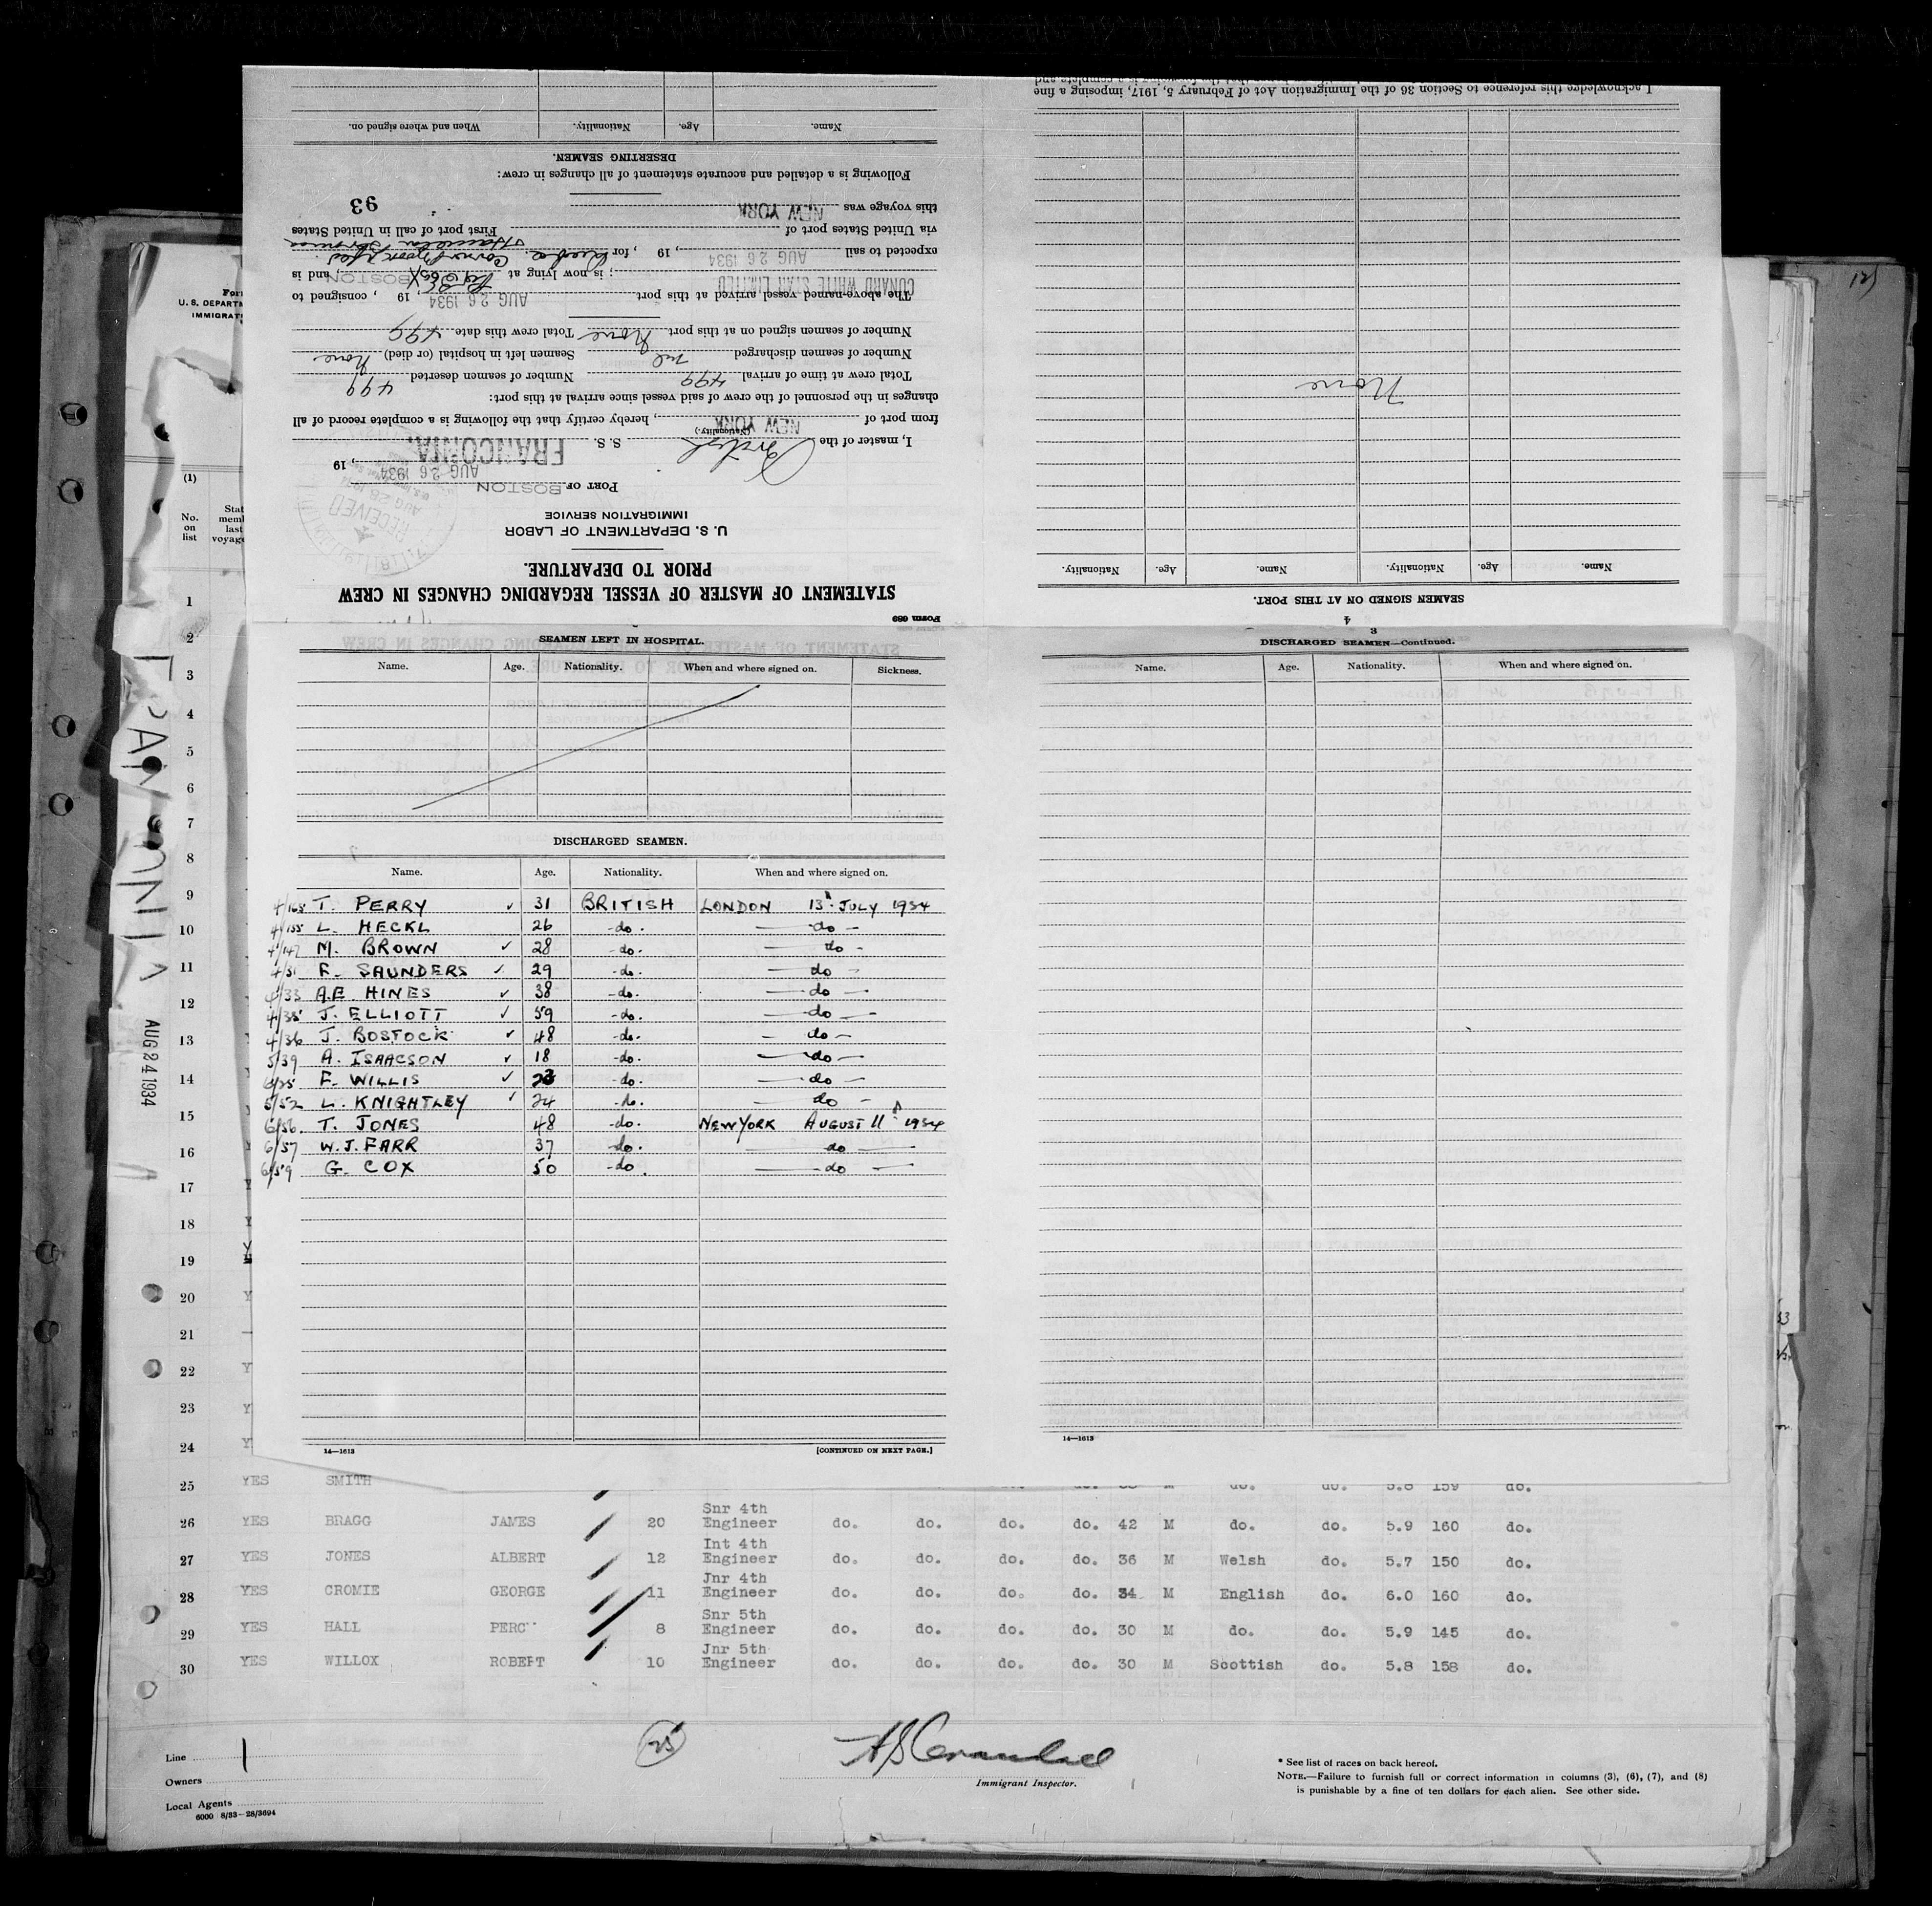 I acknowledge this reference to Section 36 of the Immigration Act of February 5, 1917, imposing a fine
Name. Age. Nationality. Name. Age. Nationality.
SEAMEN SIGNED ON AT THIS PORT.
None
4
Form 689
STATEMENT OF MASTER OF VESSEL REGARDING CHANGES IN CREW
PRIOR TO DEPARTURE.
U. S. DEPARTMENT OF LABOR
IMMIGRATION SERVICE
PORT OF BOSTON AUG 26 1934, 19
RECEIVED
AUG 28 1934
I, master of the British S. S. FRANCONIA.
(Nationality.)
from port of NEW YORK, hereby certify that the following is a complete record of all
changes in the personnel of the crew of said vessel since arrival at this port:
Total crew at time of arrival 499 Number of seamen deserted 499
Number of seamen discharged nil Seamen left in hospital (or died) None
Number of seamen signed on at this port None Total crew this date 499
The above-named vessel arrived at this port AUG 26 1934, 19 , consigned to
CUNARD WHITE STAR LIMITED; is now lying at BOSTON, and is
expected to sail AUG 26 1934, 19 , for
via United States port of First port of call in United States
this voyage was NEW YORK
93
Following is a detailed and accurate statement of all changes in crew:
DESERTING SEAMEN.
Name. Age. Nationality. When and where signed on.
SEAMEN LEFT IN HOSPITAL.
Name. Age. Nationality. When and where signed on. Sickness.
DISCHARGED SEAMEN.
Name. Age. Nationality. When and where signed on.
4/168 T. PERRY ✓ 31 BRITISH LONDON 13th JULY 1934
4/155 L. HECKL 26 -do. do
4/147 M. BROWN ✓ 28 -do. do
4/31 F. SAUNDERS ✓ 29 -do. do
4/33 A.E. HINES ✓ 38 -do. do
4/35 J. ELLIOTT ✓ 59 -do. do
4/36 J. BOSTOCK ✓ 48 -do. do
5/39 A. ISAACSON ✓ 18 -do. do
F. WILLIS ✓ 23 -do. do
5/52 L. KNIGHTLEY ✓ 24 -do. do
6/56 T. JONES 48 -do. NEW YORK AUGUST 11th 1934
6/57 W.J. FARR 37 -do. do
6/59 G. COX 50 -do. do
14—1613 [CONTINUED ON NEXT PAGE.]
3
DISCHARGED SEAMEN—Continued.
Name. Age. Nationality. When and where signed on.
14—1613
U. S. DEPARTM
IMMIGRAT
(1)
No. on list
FRANCONIA
AUG 24 1934
1
2
3
4
5
6
7
8
9
10
11
12
13
14
15
16
17
18
19
20
21
22
23
24
25 YES SMITH do. do. 5.8 159 do.
26 YES BRAGG JAMES 20 Snr 4th Engineer do. do. do. do. 42 M do. do. 5.9 160 do.
27 YES JONES ALBERT 12 Int 4th Engineer do. do. do. do. 36 M Welsh do. 5.7 150 do.
28 YES CROMIE GEORGE 11 Jnr 4th Engineer do. do. do. do. 34 M English do. 6.0 160 do.
29 YES HALL PERC 8 Snr 5th Engineer do. do. do. do. 30 M do. do. 5.9 145 do.
30 YES WILLOX ROBERT 10 Jnr 5th Engineer do. do. do. do. 30 M Scottish do. 5.8 158 do.
Line 1
Owners
Local Agents
6000 8/33—28/3694
25
Immigrant Inspector.
* See list of races on back hereof.
NOTE.—Failure to furnish full or correct information in columns (3), (6), (7), and (8)
is punishable by a fine of ten dollars for each alien. See other side.